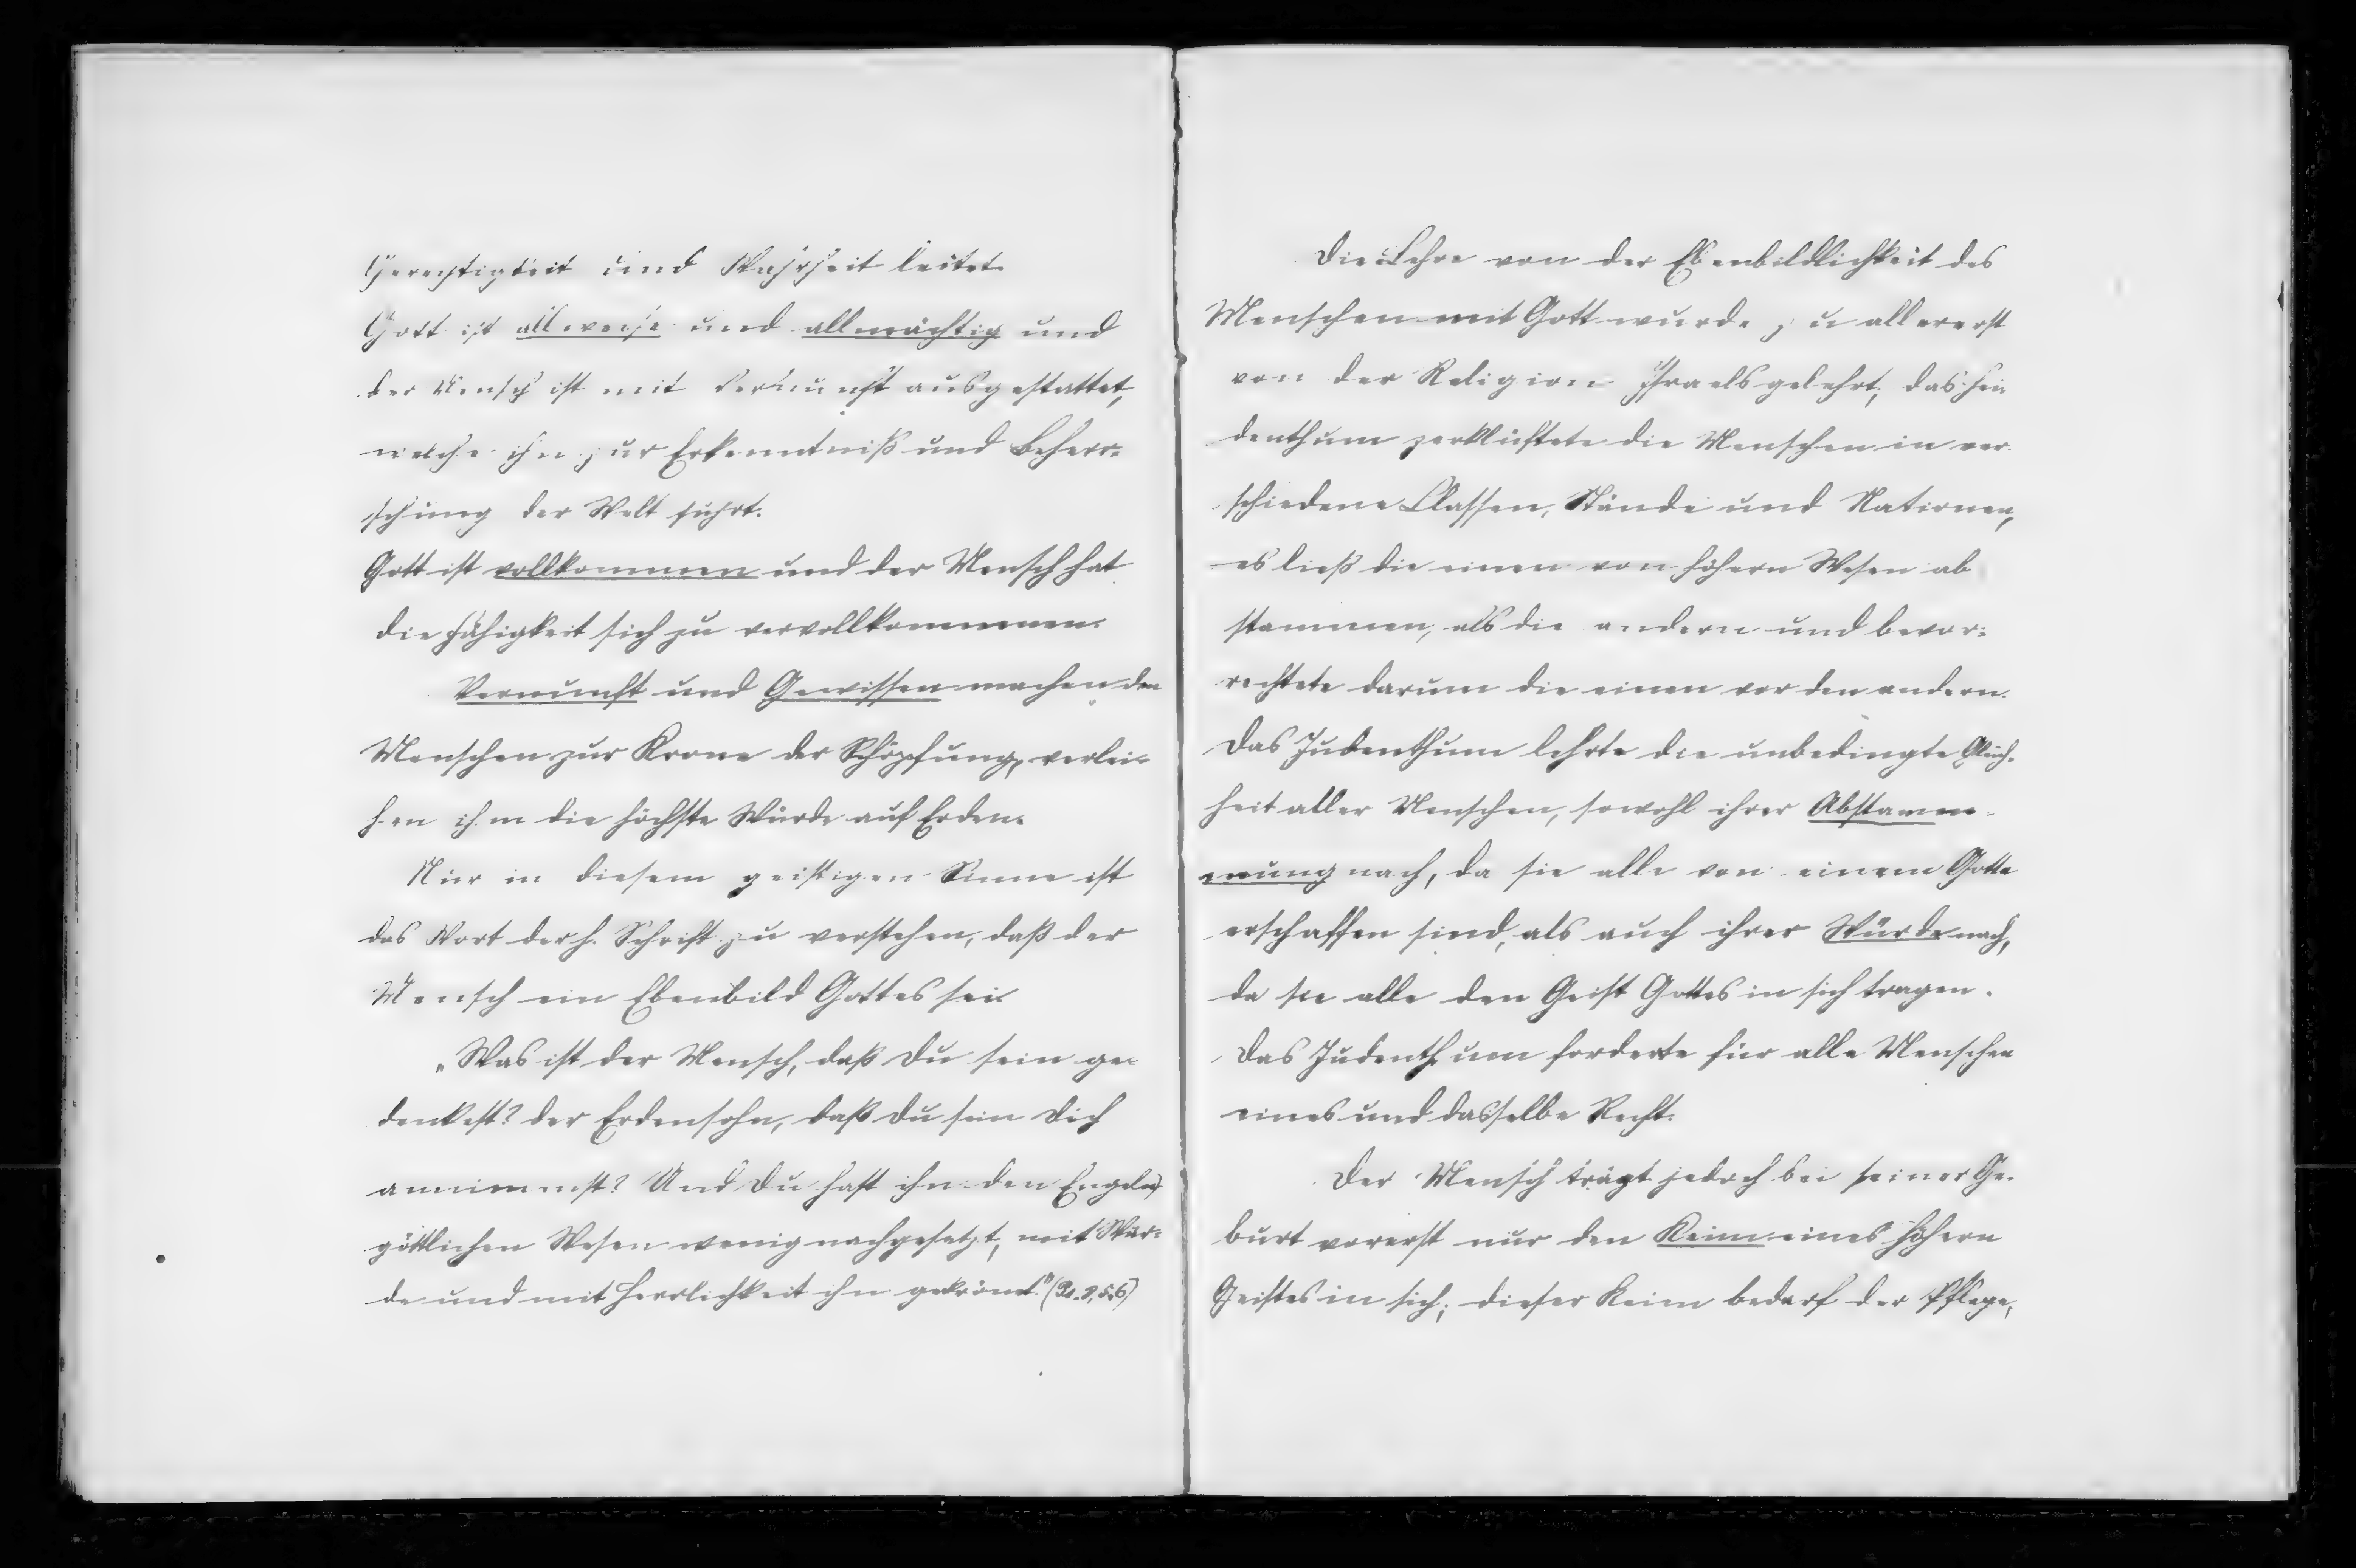 Gerechtigkeit und Wahrheit leitet.
Gott ist allweise und allmächtig und
der Mensch ist mit Vernunft ausgestattet,
welche ihn zur Erkenntniß und Beherr=
schung der Welt führt.
Gott ist vollkommen und der Mensch hat
die Fähigkeit sich zu vervollkommnen.
Vernunft und Gewissen machen den
Menschen zur Krone der Schöpfung, verlei=
hen ihm die höchste Würde auf Erden.
Nur in diesem geistigen Sinne ist
das Wort der h. Schrift zu verstehen, daß der
Mensch ein Ebenbild Gottes sei.
„Was ist der Mensch, daß Du sein ge=
denkest? der Erdensohn, daß Du sein Dich
annimmst? Und Du hast ihn den Engeln,
göttlichen Wesen wenig nachgesetzt, mit Wür=
de und mit Herrlichkeit ihn gekrönt." (Ps. 8,5.6)
Die Lehre von der Ebenbildlichkeit des
Menschen mit Gott wurde zu allererst
von der Religion Israels gelehrt; das Hei=
denthum zerklüftete die Menschen in ver=
schiedene Classen, Stände und Nationen,
es ließ die einen von höhern Wesen ab
stammen, als die andern und bevor=
rechtete darum die einen vor den andern.
Das Judenthum lehrte die unbedingte Gleich=
heit aller Menschen, sowohl ihrer Abstamm=
mung nach, da sie alle von einem Gotte
erschaffen sind, als auch ihrer Würde nach,
da sie alle den Geist Gottes in sich tragen.
Das Judenthum forderte für alle Menschen
eines und dasselbe Recht.
Der Mensch trägt jedoch bei seiner Ge=
burt vorerst nur den Keim eines höhern
Geistes in sich; dieser Keim bedarf der Pflege,